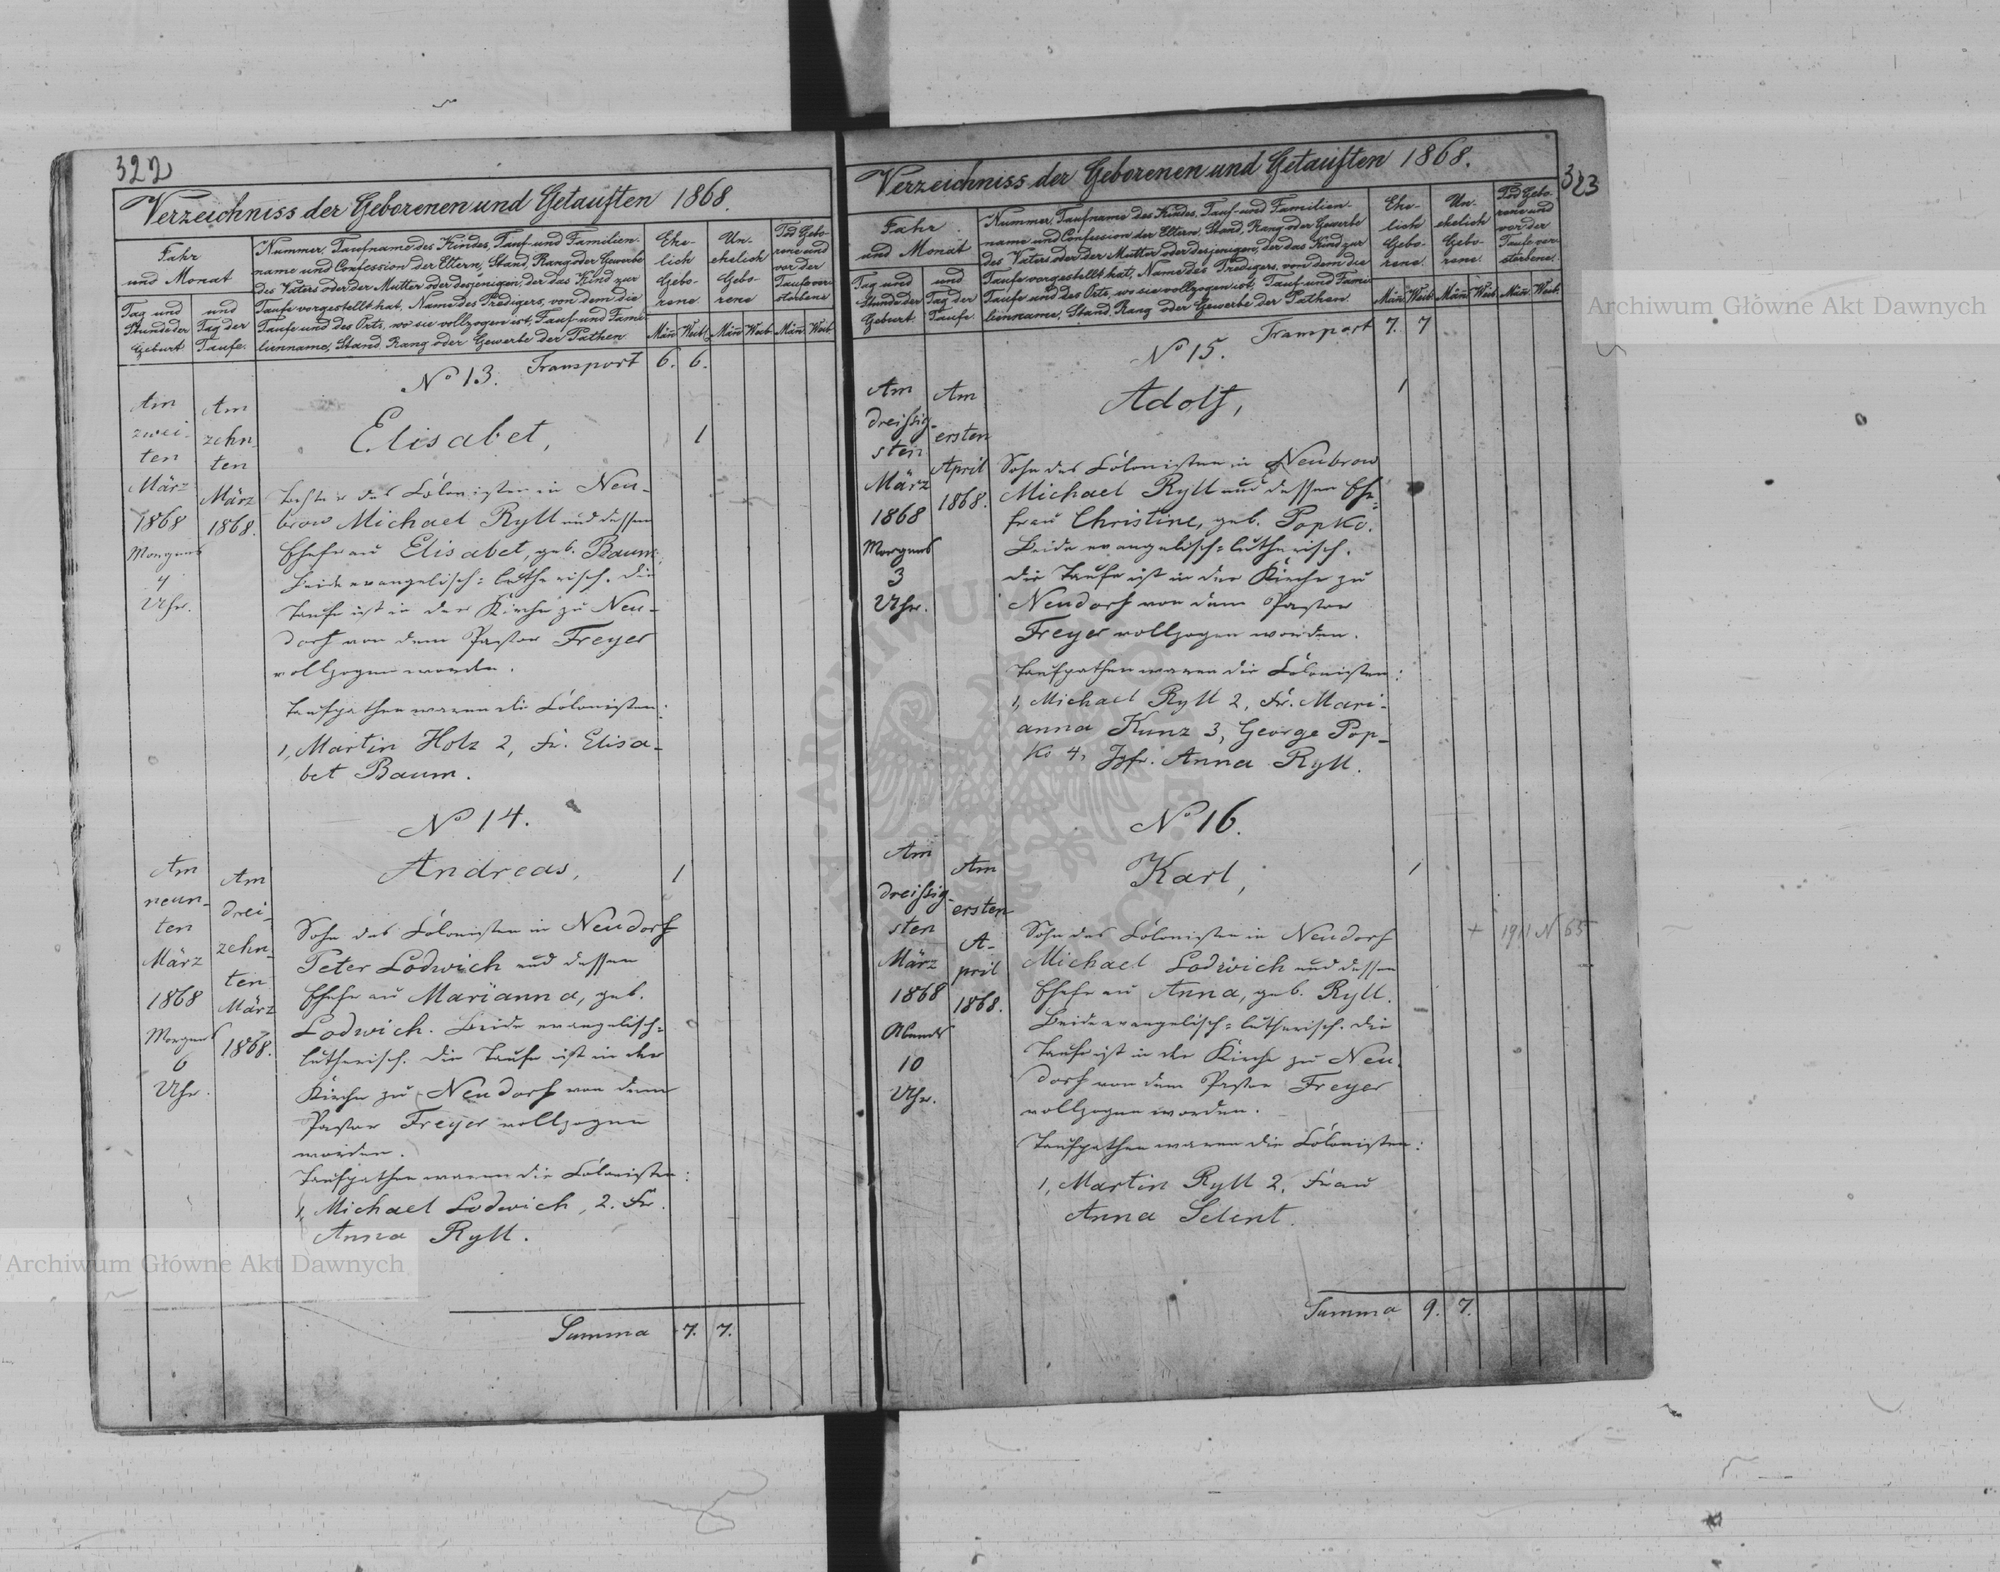 322
Verzeichniss der Geborenen und Getauften 1868.
Jahr und Monat
Tag und Stunde der Geburt.
und Tag der Taufe.
Nummer, Taufname des Kindes, Tauf- und Familien-
name und Confession der Eltern, Stand, Rang oder Gewerbe
des Vaters oder der Mutter oder desjenigen, der das Kind zur
Taufe vorgestellt hat, Name des Predigers, von dem die
Taufe und des Orts, wo sie vollzogen ist, Tauf- und Fami-
lienname, Stand, Rang oder Gewerbe der Pathen.
Ehe-
lich
Gebo-
rene
Un-
ehelich
Gebo-
rene
Tod Gebo-
rene und
vor der
Taufe ver-
storbene
Män̄ Weib. Män̄ Weib Män̄ Weib
Transport 6. 6.
No 13.
Am
zwei-
ten
März
1868
Morgens
4
Uhr.
Am
zehn-
ten
März
1868.
Elisabet, 1
Tochter des Colonisten in Neu-
brow Michael Ryll und dessen
Ehefrau Elisabet, geb. Baum,
Beide evangelisch=lutherisch. Die
Taufe ist in der Kirche zu Neu-
dorf von dem Pastor Freyer
vollzogen worden.
Taufpathen waren die Colonisten:
1, Martin Holz 2, Fr. Elisa-
bet Baum.
No 14.
Am
neun-
ten
März
1868
Morgens
6
Uhr.
Am
drei-
zehn-
ten
März
1868.
Andreas, 1
Sohn des Colonisten in Neudorf
Peter Lodwich und dessen
Ehefrau Marianna, geb.
Lodwich. Beide evangelisch=
lutherisch. Die Taufe ist in der
Kirche zu Neudorf von dem
Pastor Freyer vollzogen
worden.
Taufpathen waren die Colonisten:
1, Michael Lodwich, 2. Fr.
Anna Ryll.
Summa 7. 7.
323
Verzeichniss der Geborenen und Getauften 1868.
Jahr
und Monat
Tag und
Stunde der
Geburt.
und
Tag der
Taufe.
Nummer, Taufname des Kindes, Tauf- und Familien-
name und Confession der Eltern, Stand, Rang oder Gewerbe
des Vaters oder der Mutter oder desjenigen, der das Kind zur
Taufe vorgestellt hat, Name des Predigers, von dem die
Taufe und des Orts, wo sie vollzogen ist, Tauf- und Fami-
lienname, Stand, Rang oder Gewerbe der Pathen.
Ehe-
lich
Gebo-
rene.
Un-
ehelich
Gebo-
rene.
Tod Gebo-
rene und
vor der
Taufe ver-
storbene.
Män̄ Weib. Män̄ Weib Män̄ Weib.
Transport 7. 7
No 15.
Am
dreissig-
sten
März
1868
Morgens
3
Uhr.
Am
ersten
April
1868.
Adolf, 1
Sohn des Colonisten in Neubrow
Michael Ryll und dessen Ehe-
frau Christine, geb. Popko.
Beide evangelisch=lutherisch.
Die Taufe ist in der Kirche zu
Neudorf von dem Pastor
Freyer vollzogen worden.
Taufpathen waren die Colonisten:
1, Michael Ryll 2, Fr. Mari-
anna Kunz 3, George Pop-
ko 4, Jgfr. Anna Ryll.
No 16.
Am
dreissig-
sten
März
1868
Abends
10
Uhr.
Am
ersten
A-
pril
1868.
Karl, 1
Sohn des Colonisten in Neudorf + 1911 N 65
Michael Lodwich und dessen
Ehefrau Anna, geb. Ryll.
Beide evangelisch=lutherisch. Die
Taufe ist in der Kirche zu Neu-
dorf von dem Pastor Freyer
vollzogen worden.
Taufpathen waren die Colonisten:
1, Martin Ryll 2, Frau
Anna Selent.
Summa 9. 7.
Archiwum Główne Akt Dawnych
Archiwum Główne Akt Dawnych